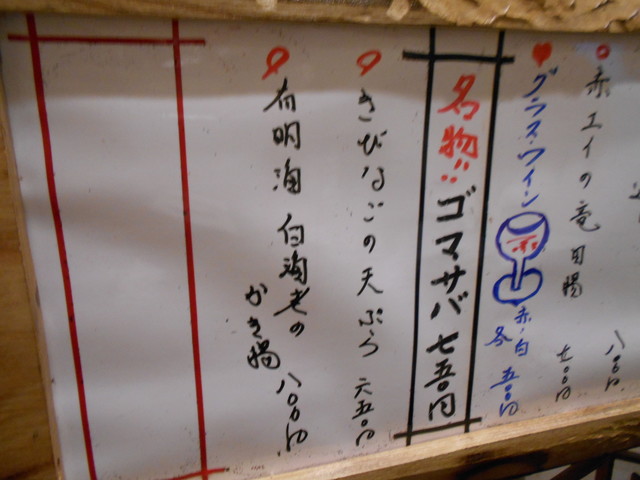 八〇〇円
赤エイの竜田揚 七〇〇円
グラスワイン 赤 赤・白 各 五〇〇円
名物!! ゴマサバ 七五〇円
きびなごの天ぷら 六五〇円
有明海 白海老の
かき揚 八〇〇円